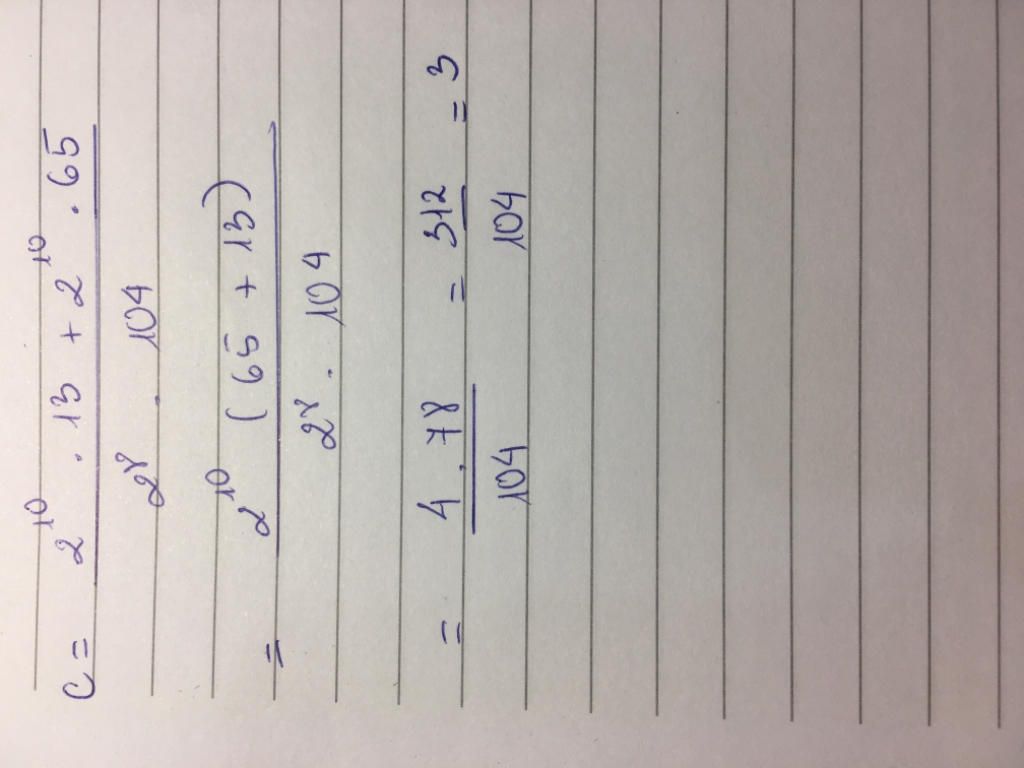 C = 2^10 . 13 + 2^10 . 65
2^8 . 104
= 2^10 (65 + 13)
2^8 . 104
= 4 . 78 = 312 = 3
104 104